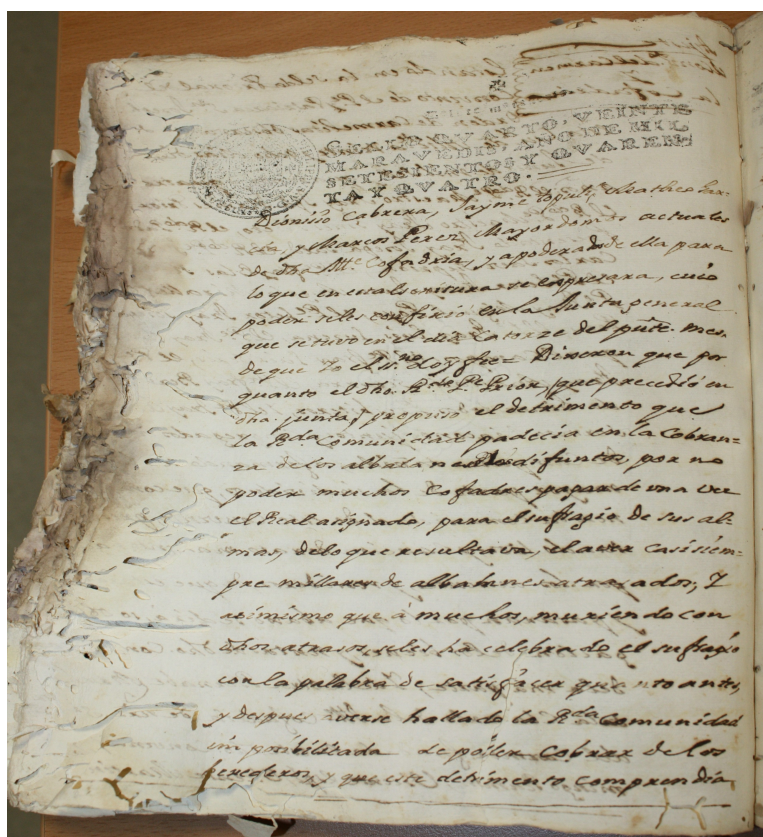 SELLO QVARTO, VEINTE
MARAVEDIS, AÑO DE MIL
SETECIENTOS Y QVAREN
TA Y QVATRO.
Dionisio Cabrera, Jayme
y Marcos Perez Mayordomos actuales
de dha Ille. Cofadria, y apoderados de ella para
lo que en esta escritura se expresara, cuio
poder se les confirio en la Junta general
que se tuvo en el dia Catorze del pnte. mes.
de que Yo el ss.no doy fee = Dixeron que por
quanto el dho. R.do P.e Prior, que precedió en
dha. junta, propuso el detrimento que
la R.da Comunidad padecia en la Cobran=
za de los albalanes de difuntos, por no
poder muchos Cofadres pagar de una vez
el Real asignado, para el sufragio de sus al-
mas, de lo que resultava, el aver casi siem-
pre millares de albalanes atrasados; Y
asimismo que à muchos, muriendo con
dhos atrasos, se les ha celebrado el sufragio
con la palabra de satisfacer quanto antes,
y despues averse hallado la R.da Comunidad
imposibilitada de poder Cobrar de los
herederos, y que este detrimento comprendia